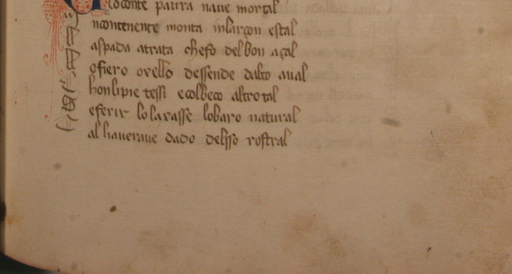 loconte paura naue mortal
ncontenente monta inlarcon estal
aspada atrata chefo delbon açal
ofiero ovello dessende dalto aual
honlipie tessi ecolbeco altrotal
eferir lolauasse lobaro natural
al haueraue dado delsso rostral